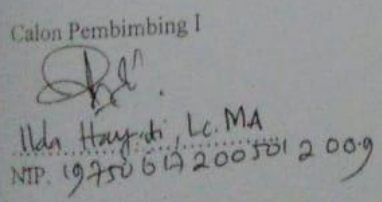 Calon Pembimbing I
Ilda Hayati, Lc. MA
NIP. 19750617 200501 2 009